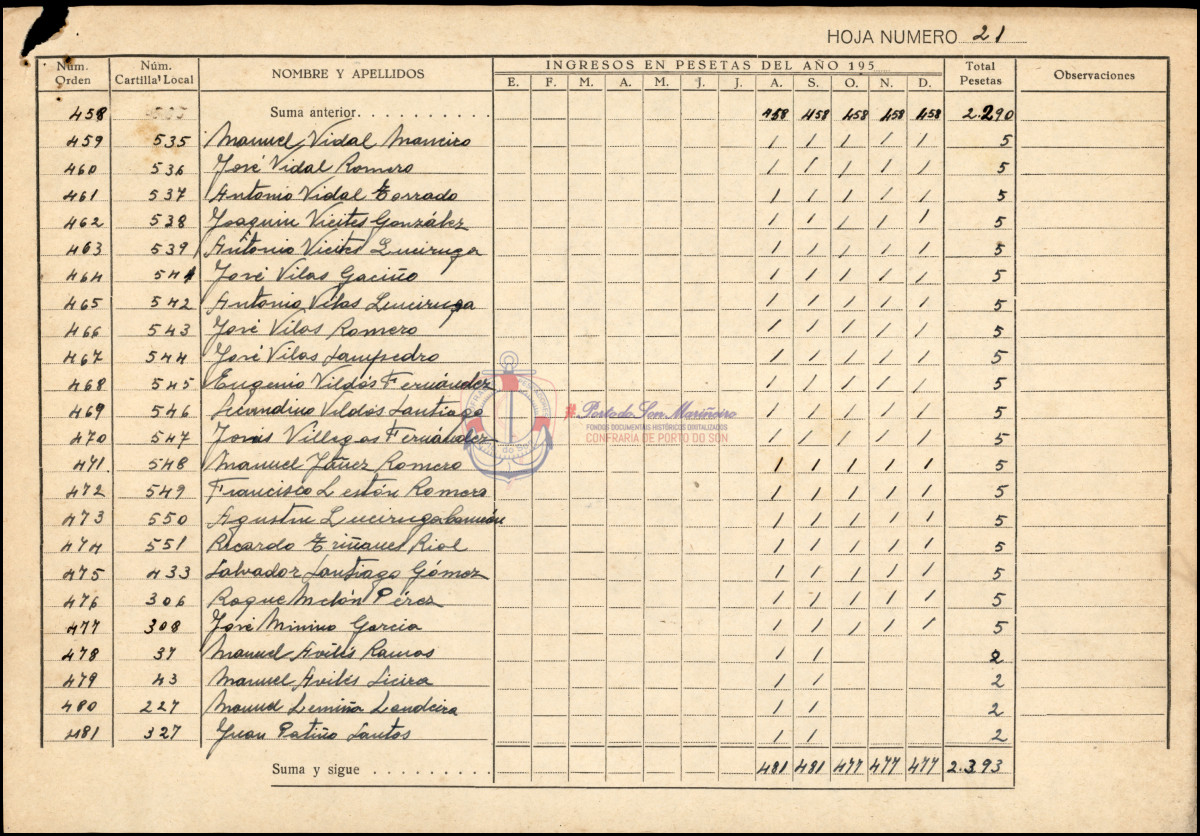 HOJA NUMERO 21
Núm. Orden Núm. Cartilla Local NOMBRE Y APELLIDOS INGRESOS EN PESETAS DEL AÑO 195 Total Pesetas Observaciones
E. F. M. A. M. J. J. A. S. O. N. D.
458 Suma anterior. 458 458 458 458 458 2.290
459 535 Manuel Vidal Maneiro / / / / / 5
460 536 José Vidal Romero / / / / / 5
461 537 Antonio Vidal Torrado / / / / / 5
462 538 Joaquin Vieites González / / / / / 5
463 539 Antonio Vieites Luciruga / / / / / 5
464 541 José Vilas Gaciño / / / / / 5
465 542 Antonio Vilas Luciruga / / / / / 5
466 543 José Vilas Romero / / / / / 5
467 544 José Vilas Sampedro / / / / / 5
468 545 Eugenio Vildós Fernández / / / / / 5
469 546 Secundino Vildós Santiago / / / / / 5
470 547 Villegas Fernández / / / / / 5
471 548 Manuel Romero / / / / / 5
472 549 Francisco Lestón Romero / / / / / 5
473 550 Agustin Luciruga / / / / / 5
474 551 Ricardo Triñanes Rial / / / / / 5
475 433 Salvador Santiago Gómez / / / / / 5
476 306 Roque Melón Pérez / / / / / 5
477 308 José Minino Garcia / / / / / 5
478 37 Manuel Avilés Ramos / / 2
479 43 Manuel Avilés Sieira / / 2
480 227 Manuel Lemiña Landeira / / 2
481 327 Juan Patiño Santos / / 2
Suma y sigue 481 481 477 477 477 2.393
#PortodoSon Mariñeiro
FONDOS DOCUMENTAIS HISTÓRICOS DIXITALIZADOS
CONFRARIA DE PORTO DO SON